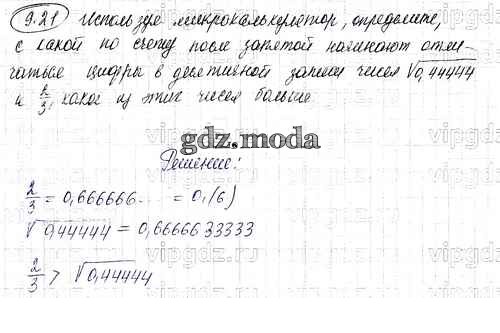 9.21 Используя микрокалькулятор, определите,
с какой по счету после запятой начинают отли-
чаться цифры в десятичной записи чисел √0,44444
и 2/3, какое из этих чисел больше.
gdz.moda
Решение:
2/3 = 0,666666... = 0,(6)
√0,44444 = 0,6666633333
2/3 > √0,44444